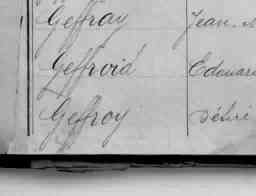 Geffray Jean-
Geffroid Edouar
Geffroy Désiré